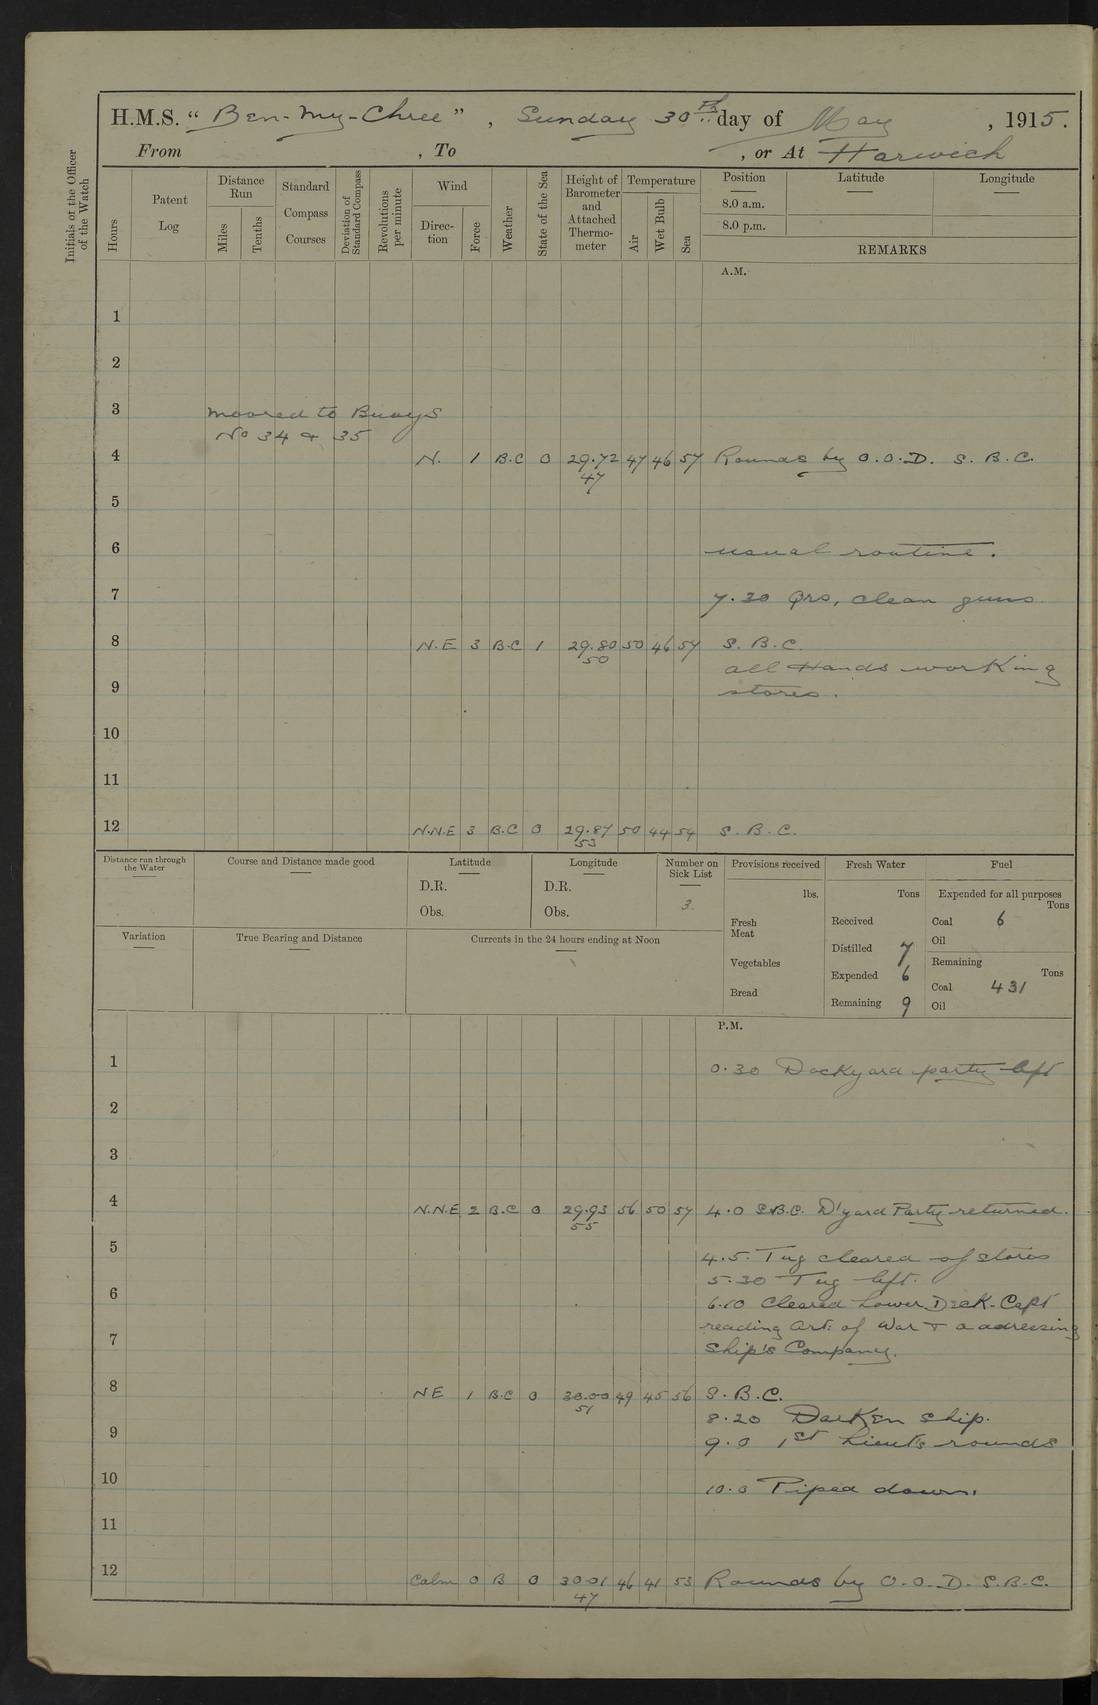 H.M.S. “ Ben-my-Chree ” , Sunday 30th day of May , 1915.
From , To , or At Harwich
Initials of the Officer of the Watch
Hours
Patent Log
Distance Run
Miles
Tenths
Standard Compass Courses
Deviation of Standard Compass
Revolutions per minute
Wind
Direc- tion
Force
Weather
State of the Sea
Height of Barometer and Attached Thermo- meter
Temperature
Air
Wet Bulb
Sea
Position
Latitude
Longitude
8.0 a.m.
8.0 p.m.
REMARKS
A.M.
1
2
3 moored to Buoys
No 34 & 35
4 N. 1 B.C 0 29.72 47 46 57 Rounds by O.O.D. S.B.C.
47
5
6 usual routine.
7 7.30 Qrs, clean guns
8 N.E 3 B.C 1 29.80 50 46 54 S.B.C.
50
all Hands working
9 stores.
10
11
12 N.N.E 3 B.C 0 29.87 50 44 54 S.B.C.
53
Distance run through the Water
Course and Distance made good
Latitude
D.R.
Obs.
Longitude
D.R.
Obs.
Number on Sick List
3.
Provisions received
lbs.
Fresh Meat
Vegetables
Bread
Fresh Water
Tons
Received
Distilled 7
Expended 6
Remaining 9
Fuel
Expended for all purposes
Tons
Coal 6
Oil
Remaining
Tons
Coal 431
Oil
Variation
True Bearing and Distance
Currents in the 24 hours ending at Noon
P.M.
1 0.30 Dockyard party left
2
3
4 N.N.E 2 B.C 0 29.93 56 50 57 4.0 S.B.C. D'yard Party returned.
55
5 4.5. Tug cleared of stores
5.30 Tug left.
6 6.10 Cleared Lower Deck. Capt
reading Art: of War & addressing
7 Ship's Company.
8 NE 1 B.C 0 30.00 49 45 56 S.B.C.
51
8.20 Darken ship.
9 9.0 1st Lieut's rounds
10 10.0 Piped down.
11
12 Calm 0 B 0 30.01 46 41 53 Rounds by O.O.D. S.B.C.
47